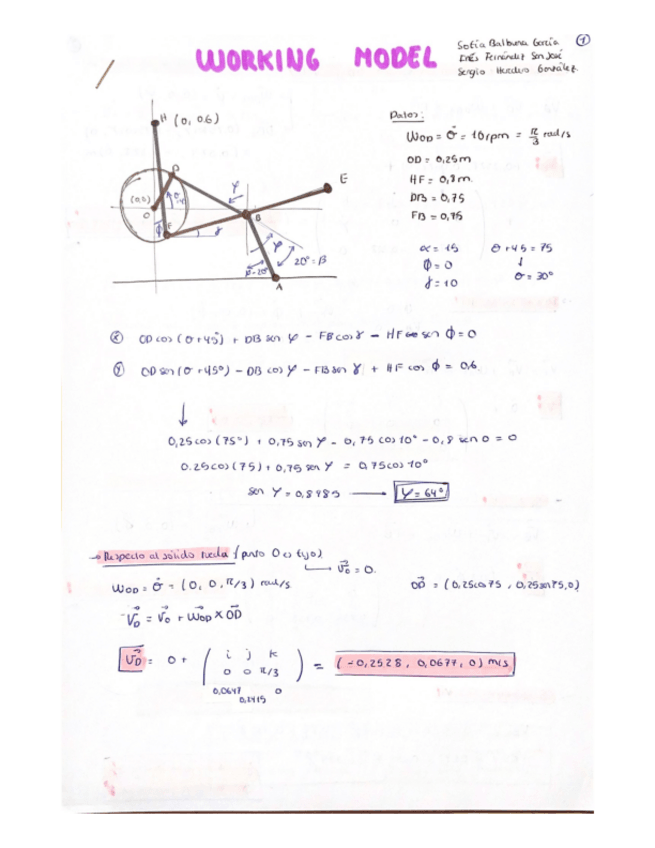 WORKING MODEL
Sofía Balbuena García
Inés Fernández San José
Sergio Huidero González
1
H (0, 0.6)
D
(0,0)
O
F
φ
γ
ψ
B
E
20° = β
A
Datos:
WOD = σ̇ = 10 rpm = π/3 rad/s
OD = 0,25m
HF = 0,7m.
DB = 0,75
FB = 0,75
α = 15 θ + 45 = 75
ϕ = 0 ↓
γ = 10 θ = 30°
ⓧ OD cos (θ + 45°) + DB sen φ - FB cos γ - HF sen ϕ = 0
ⓨ OD sen (θ + 45°) - DB cos φ - FB sen γ + HF cos ϕ = 0,6
↓
0,25 cos (75°) + 0,75 sen φ - 0,75 cos 10° - 0,8 sen 0 = 0
0.25 cos (75) + 0,75 sen φ = 0,75 cos 10°
sen φ = 0,8985 → φ = 64°
→ Respecto al sólido rueda (punto O es fijo)
→ V⃗o = 0.
WOD = σ̇ = (0, 0, π/3) rad/s OD⃗ = (0,25cos75, 0,25sen75, 0)
V⃗D = V⃗o + W⃗OD × OD⃗
V⃗D = 0 + ( i j k
0 0 π/3 ) = (-0,2528, 0,0677, 0) m/s
0,0647 0,2415 0